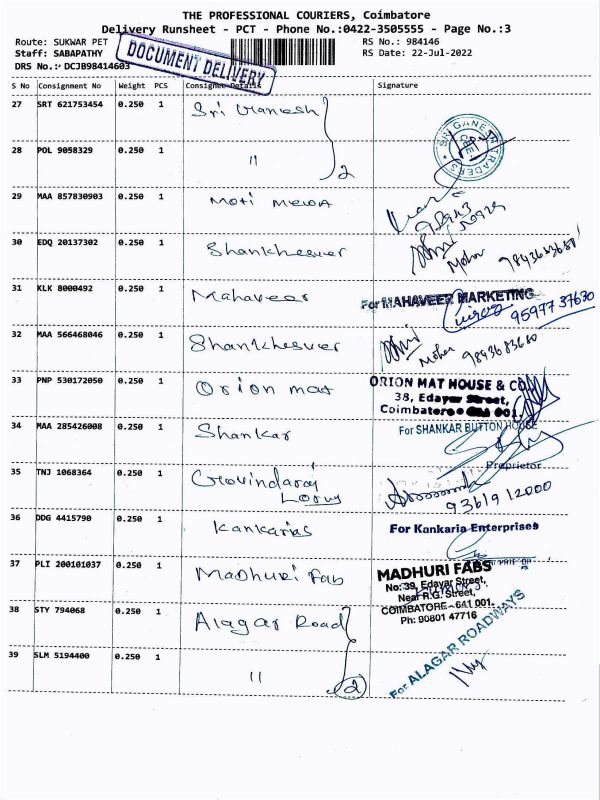 THE PROFESSIONAL COURIERS, Coimbatore
Delivery Runsheet - PCT - Phone No.:0422-3505555 - Page No.:3
Route: SUKWAR PET
RS No.: 984146
Staff: SABAPATHY
RS Date: 22-Jul-2022
DRS No.: DCJB98414603
DOCUMENT DELIVERY
S No Consignment No Weight PCS Consignee Details Signature
27 SRT 621753454 0.250 1 Sri Ganesh
SRI GANESH TRADERS CBE
28 POL 9058329 0.250 1 " 2
29 MAA 857830903 0.250 1 Moti Mewa
30 EDQ 20137302 0.250 1 Shankheswer
Mohan 9843683680
31 KLK 8000492 0.250 1 Mahaveer
For MAHAVEER MARKETING
9597737630
32 MAA 566468046 0.250 1 Shankheswer
Mohan 9843683680
33 PNP 530172050 0.250 1 Orion mat
ORION MAT HOUSE & CO
38, Edayar Street,
Coimbatore 001.
34 MAA 285426008 0.250 1 Shankar
For SHANKAR BUTTON HOUSE
Proprietor
35 TNJ 1068364 0.250 1 Govindaraj
9361912000
36 DDG 4415790 0.250 1 Kankarias
For Kankaria Enterprises
37 PLI 200101037 0.250 1 Madhuri Fab
MADHURI FABS
No:39, Edayar Street,
Near R.G. Street,
COIMBATORE - 641 001.
Ph: 90801 47716
38 STY 794068 0.250 1 Alagar Road
For ALAGAR ROADWAYS
39 SLM 5194400 0.250 1 " 2